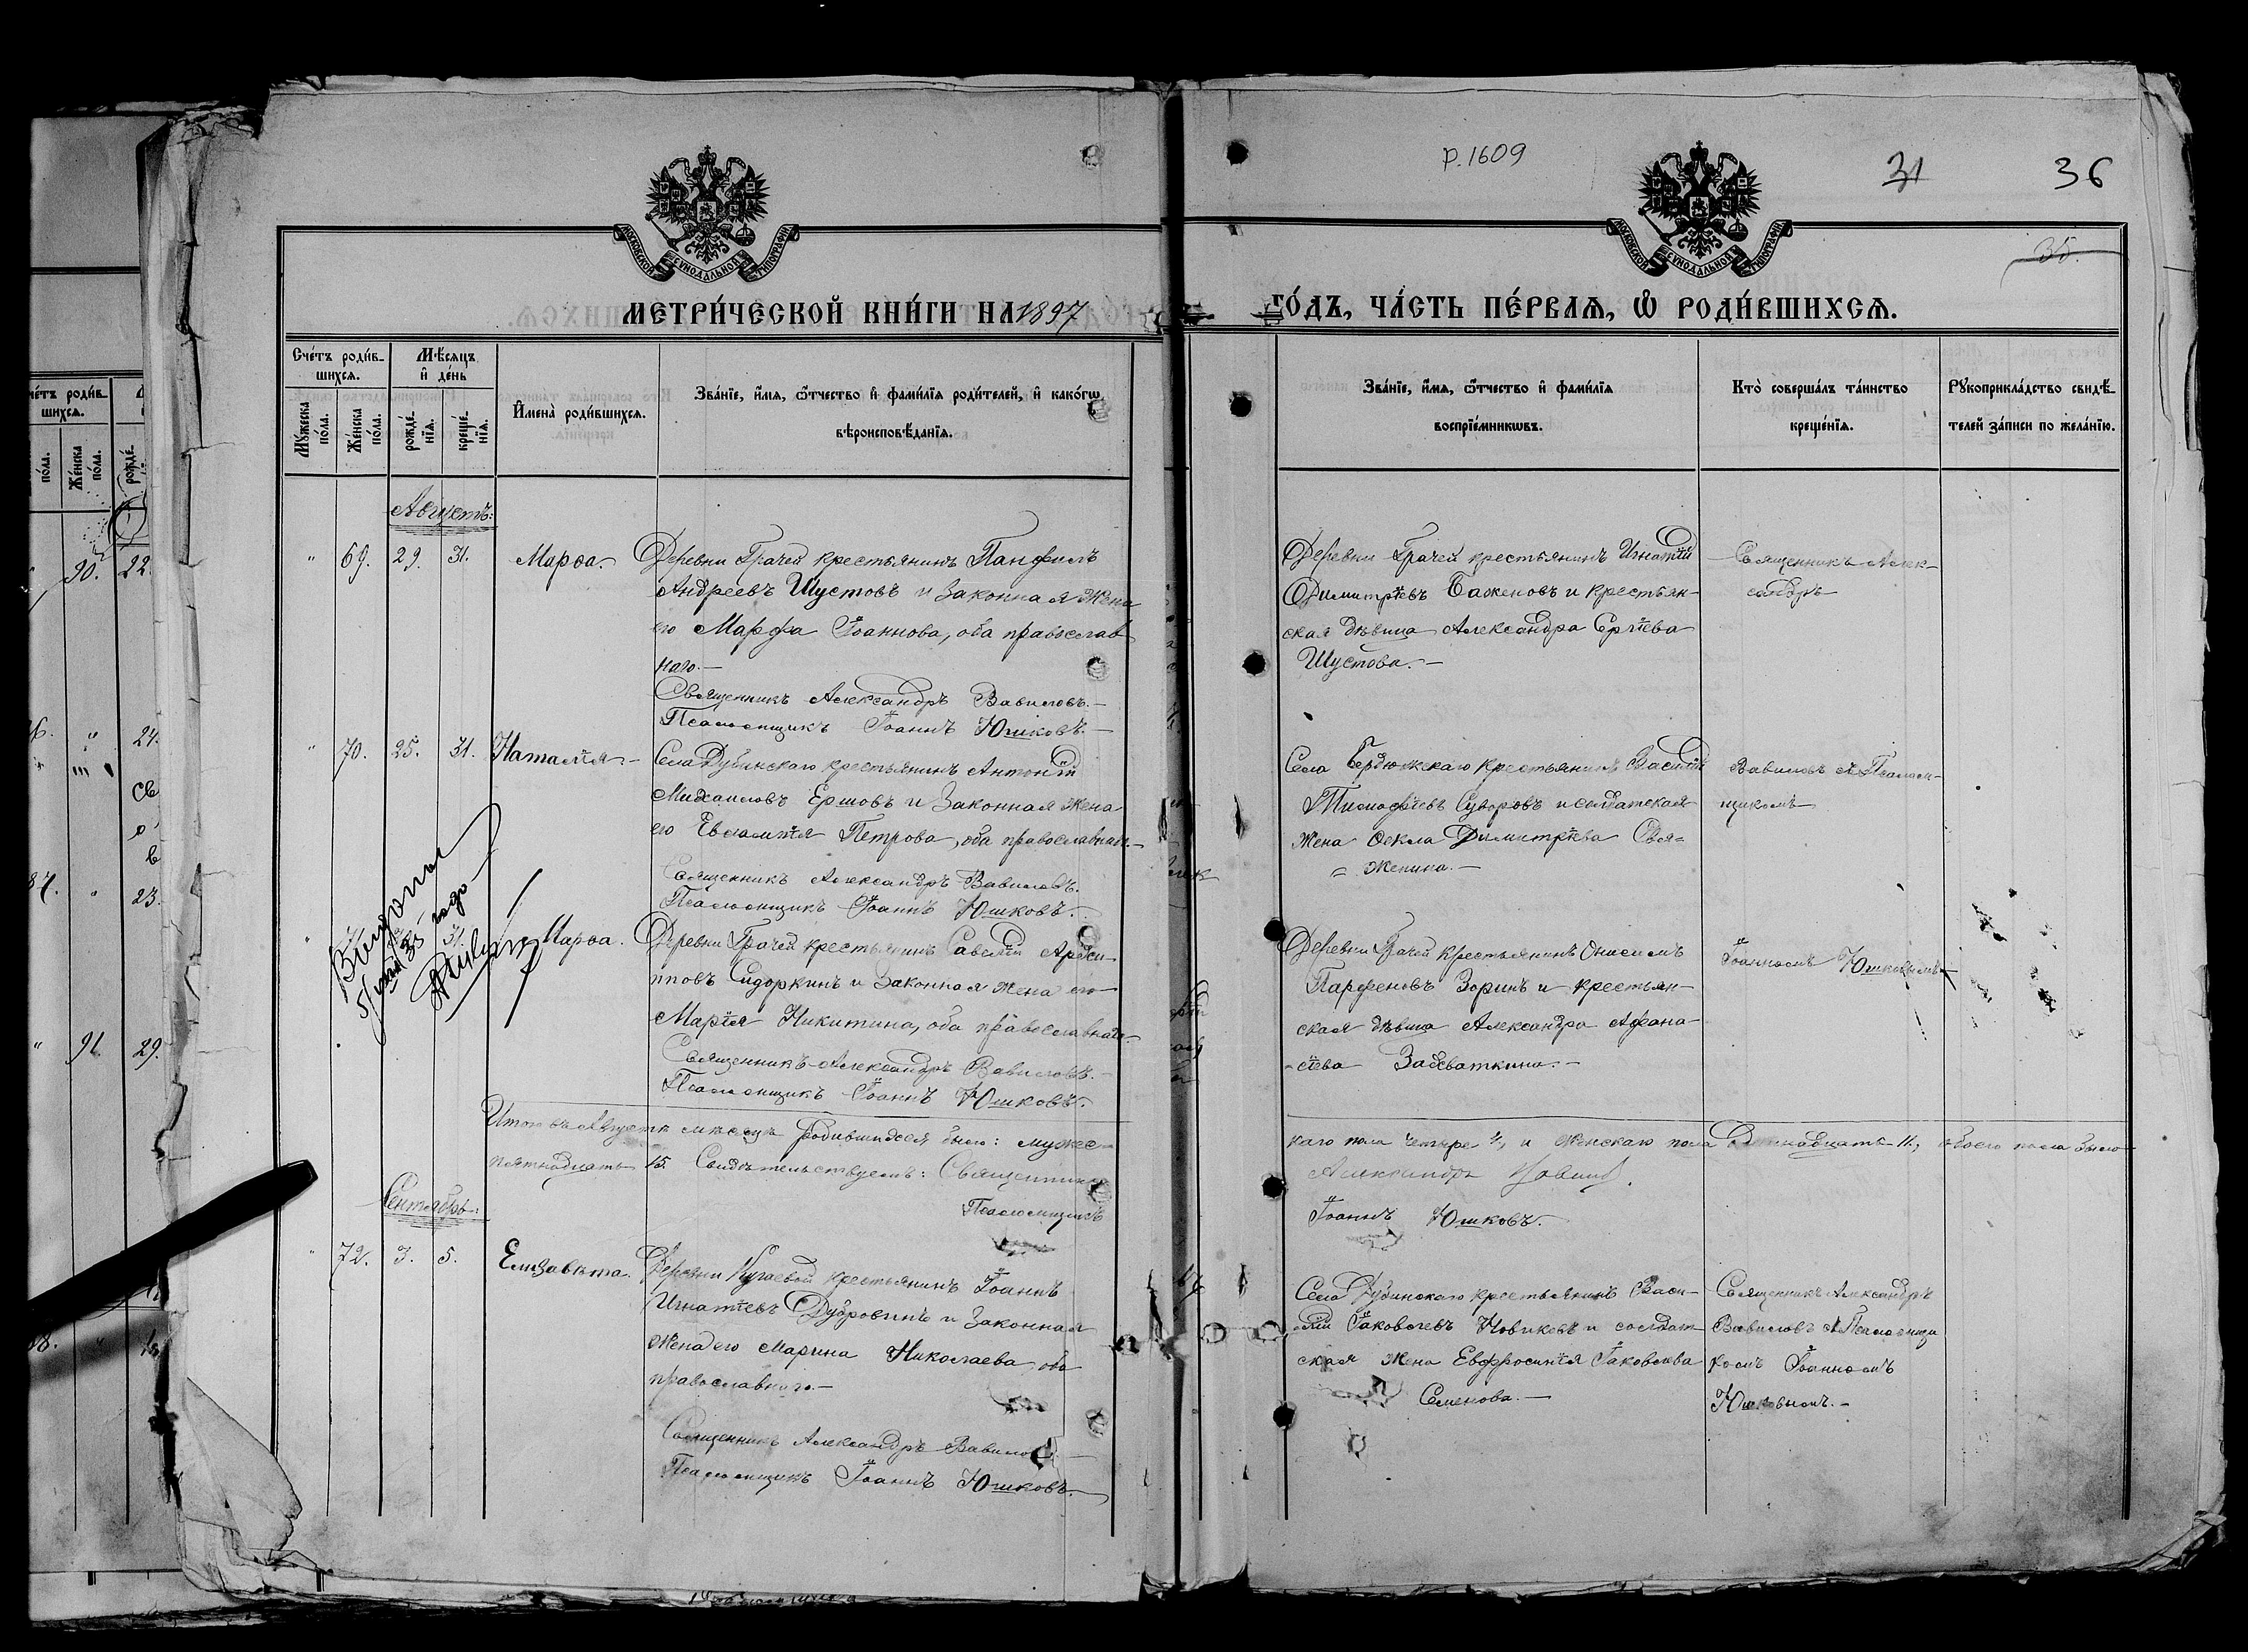 р. 1609
31
36
35.
МОСКОВСКОЙ СѴНОДАЛЬНОЙ ТИПОГРАФІИ
МОСКОВСКОЙ СѴНОДАЛЬНОЙ ТИПОГРАФІИ
МЕТРИ́ЧЕСКОЙ КНИ́ГИ НА 1897
ГО́ДЪ, ЧА́СТЬ ПЕ́РВАѦ, Ѡ҆ РОДИ́ВШИХСѦ.
Сче́тъ роди́в-
шихсѧ.
Мѣ́сѧцъ
и҆ де́нь
Мꙋ́жеска
по́ла.
Же́нска
по́ла.
рожде́-
нїѧ.
креще́-
нїѧ.
И҆мена̀ роди́вшихсѧ.
Зва́нїе, и҆́мѧ, ѻ҆́тчество и҆ фами́лїѧ роди́телей, и҆ како́гѡ
вѣроисповѣ́данїѧ.
Зва́нїе, и҆́мѧ, ѻ҆́тчество и҆ фами́лїѧ
воспрїе́мникѡвъ.
Кто̀ соверша́лъ та́инство
креще́нїѧ.
Рꙋкоприкла́дство свидѣ́-
телей за́писи по жела́нїю.
Августъ:
" 69. 29. 31. Марѳа.
Деревни Грачей крестьянинъ Панфилъ
Андреевъ Шустовъ и законная жена
его Марфа Іоаннова, оба православ
наго.—
Священникъ Александръ Вавиловъ.—
Псаломщикъ Іоаннъ Юшковъ.—
Деревни Грачей крестьянинъ Игнатій
Димитріевъ Баженовъ и крестьян-
ская дѣвица Александра Сергіева
Шустова.—
Священникъ Алек-
сандръ
" 70. 25. 31. Наталія.—
Села Дубинскаго крестьянинъ Антоній
Михаиловъ Ершовъ и законная жена
его Евлампія Петрова, оба православнаго.—
Священникъ Александръ Вавиловъ.
Псаломщикъ Іоаннъ Юшковъ.
Села Бердюжскаго крестьянинъ Василій
Тимофѣевъ Суворовъ и солдатская
жена Ѳекла Димитріева Свя-
женина.—
Вавиловъ съ Псалом-
щикомъ
31. Марѳа.
5/ мая 35 года
Деревни Грачей крестьянинъ Савелій
пповъ Сидоркинъ и законная жена его
Марія Никитина, оба православнаго.
Священникъ Александръ Вавиловъ.—
Псаломщикъ Іоаннъ Юшковъ.
Деревни Грачей крестьянинъ Онисимъ
Парфеновъ Зоринъ и крестьян-
ская дѣвица Александра Афана-
сіева Захваткина.—
Іоанномъ Юшковымъ
Итого въ Августѣ мѣсяцѣ родившихся было: мужес-
каго пола четыре 4, и женскаго пола одиннадцать 11, обоего пола было
пятнадцать 15. Свидѣтельствуемъ: Священникъ
Александръ Вавиловъ.
Псаломщикъ
Іоаннъ Юшковъ.
Сентябрь:
" 72. 3. 5. Елизавета.
Деревни Кугаевой крестьянинъ Іоаннъ
Игнатіевъ Дубровинъ и законная
жена его Марина Николаева, оба
православнаго.—
Священникъ Александръ Вавиловъ.—
Псаломщикъ Іоаннъ Юшковъ.
Села Дубинскаго крестьянинъ Васи-
лій Іаковлевъ Новиковъ и солдат
ская жена Евфросинія Іаковлева
Семенова.—
Священникъ Александръ
Вавиловъ съ Псаломщи
комъ Іоанномъ
Юшковымъ.—